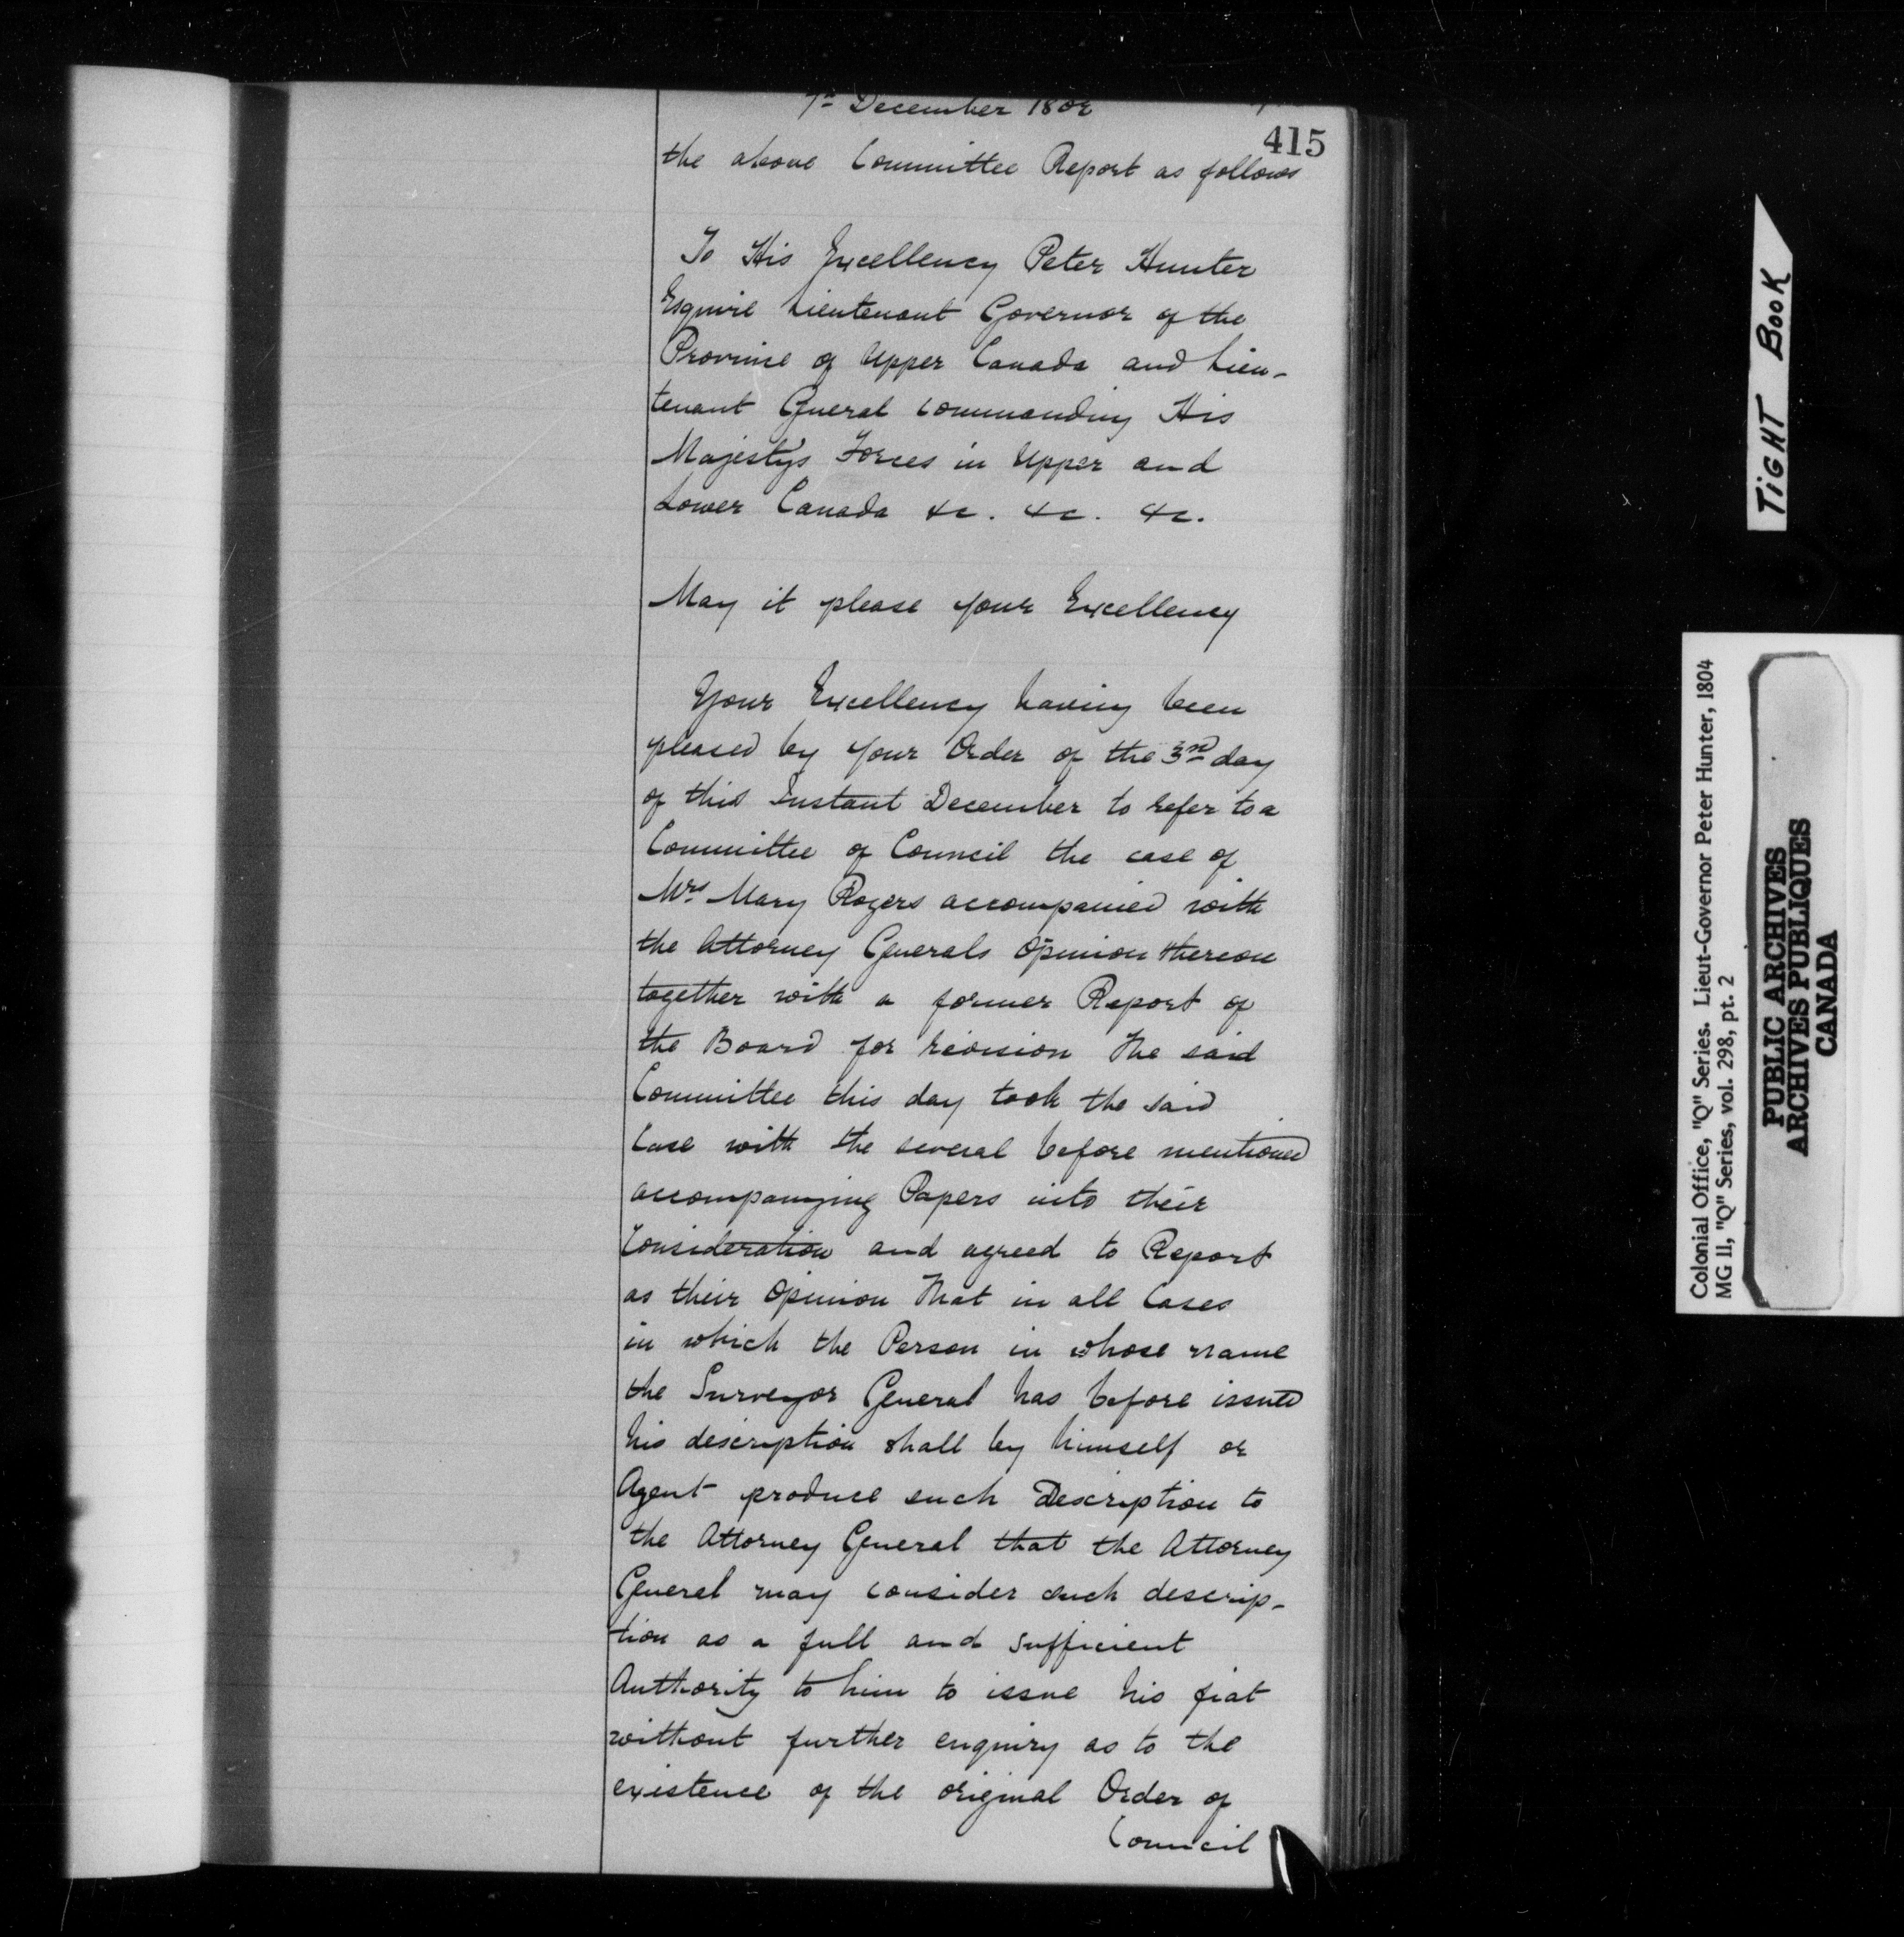 7th December 1802
415
the above Committee Report as follows
To His Excellency Peter Hunter
Esquire Lieutenant Governor of the
Province of Upper Canada and Lieu-
tenant General commanding His
Majesty's Forces in Upper and
Lower Canada &c. &c. &c.
May it please your Excellency
Your Excellency having been
pleased by your Order of the 3rd day
of this Instant December to refer to a
Committee of Council the case of
Mrs Mary Rogers accompanied with
the Attorney Generals Opinion thereon
together with a former Report of
the Board for revision The said
Committee this day took the said
Case with the several before mentioned
accompanying Papers into their
Consideration and agreed to Report
as their Opinion That in all Cases
in which the Person in whose name
the Surveyor General has before issued
his description shall by himself or
Agent produce such Description to
the Attorney General that the Attorney
General may consider such descrip-
tion as a full and sufficient
Authority to him to issue his fiat
without further enquiry as to the
existence of the original Order of
Council
TIGHT BOOK
Colonial Office, "Q" Series. Lieut-Governor Peter Hunter, 1804
MG 11, "Q" Series, vol. 298, pt. 2
PUBLIC ARCHIVES
ARCHIVES PUBLIQUES
CANADA